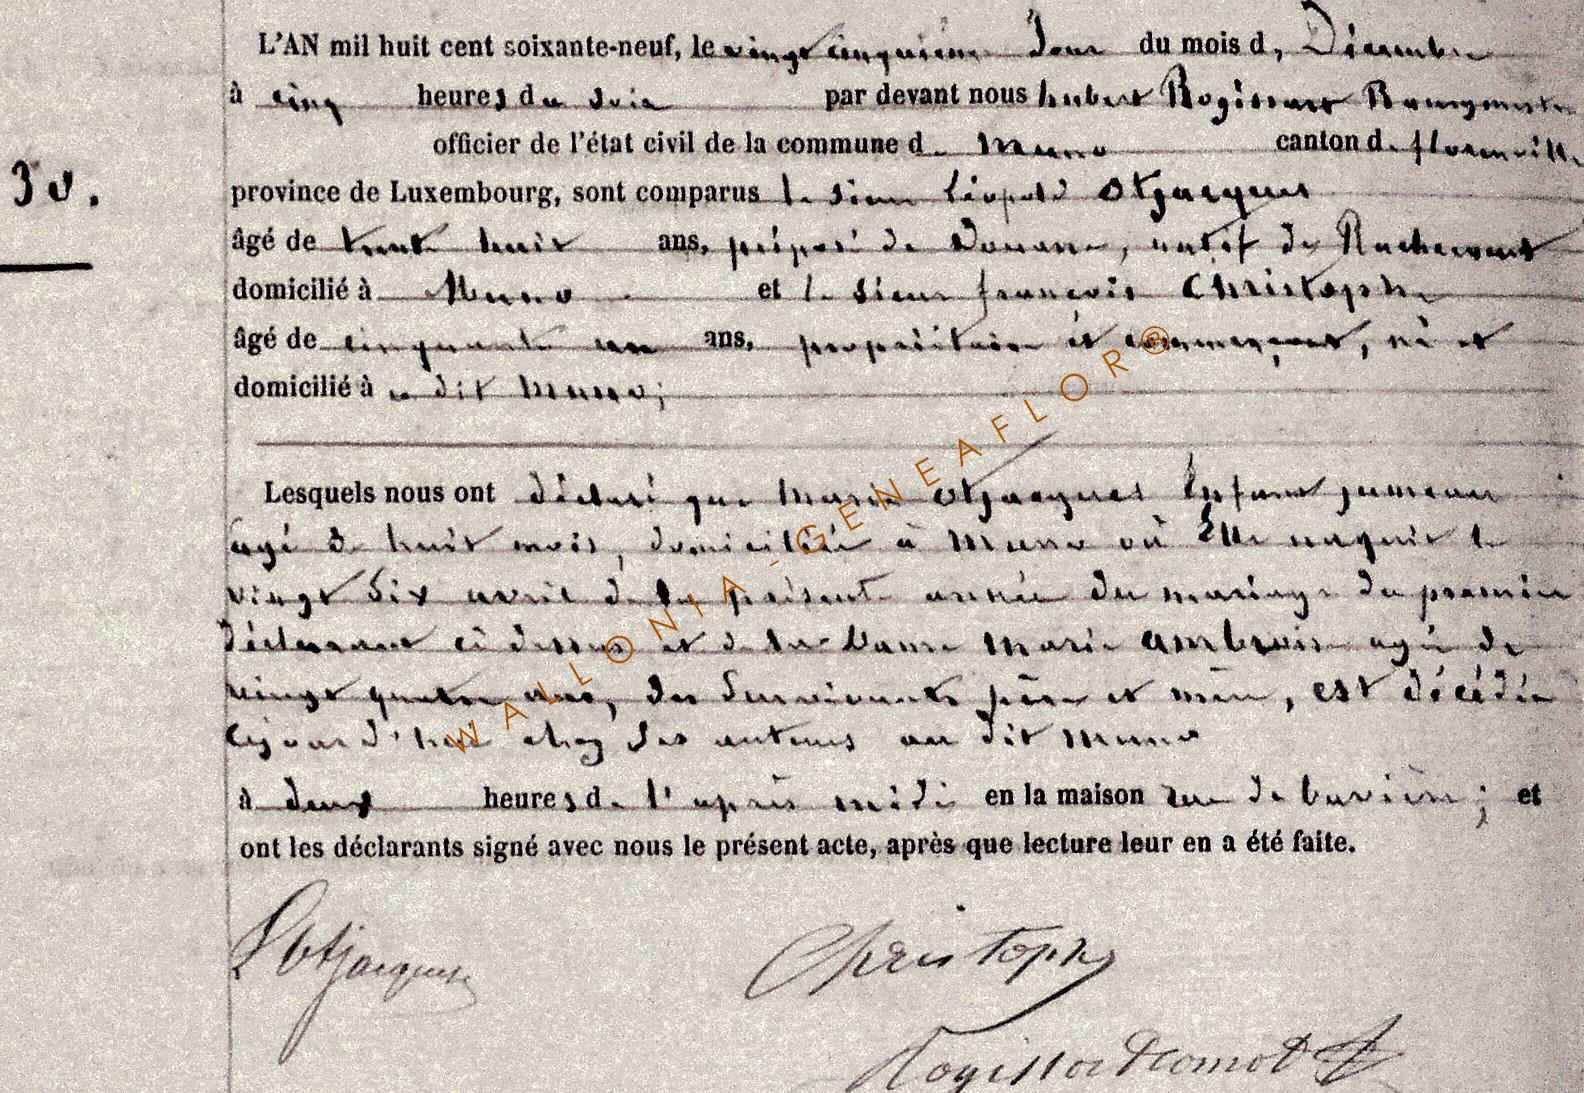 L'AN mil huit cent soixante-neuf, le vingt cinquième Jour du mois d, Décembre
à cinq heures du Soir par devant nous hubert Rogissart Bourgmestre
30.
officier de l'état civil de la commune de Muno canton de florenville
province de Luxembourg, sont comparus le Sieur Léopold Otjacques
âgé de trente huit ans, préposé de Douane, natif de Rachecourt
domicilié à Muno et le Sieur françois Christophe
âgé de cinquante un ans, propriétaire et commerçant, né et
domicilié à u dit Muno;
Lesquels nous ont déclaré que Marie Otjacques Enfant jumeau
agé de huit mois, domiciliée à Muno où Elle naquit le
vingt Six avril de la présente année du mariage du premier
déclarant ci dessus et de la Dame Marie Ambroise agée de
vingt quatre ans, Ses Survivants père et mère, est décédée
cejourd'hui chez Ses auteurs au dit Muno
à deux heures de l'après midi en la maison rue de bavière; et
ont les déclarants signé avec nous le présent acte, après que lecture leur en a été faite.
L Otjacques Christophe
Rogissart
WALLONIA-GENEAFLOR®